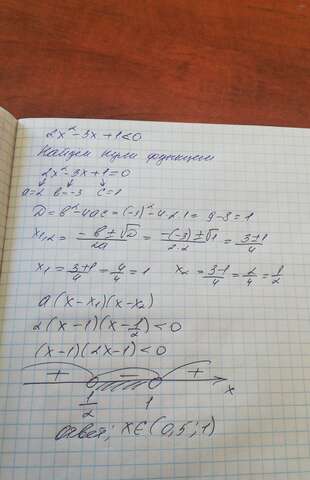 2x²-3x+1<0
Найдем нули функции
2x²-3x+1=0
a=2 b=-3 c=1
D=b²-4ac=(-3)²-4·2·1=9-8=1
x₁,₂=(-b±√D)/2a=(-(-3)±√1)/2·2=(3±1)/4
x₁=(3+1)/4=4/4=1 x₂=(3-1)/4=2/4=1/2
a(x-x₁)(x-x₂)
2(x-1)(x-1/2)<0
(x-1)(2x-1)<0
+ - +
1/2 1 x
Ответ: x∈(0,5;1)